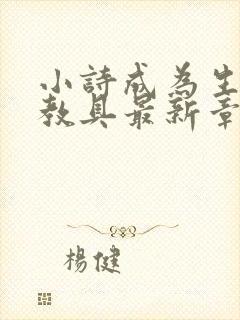 小詩成為生
教具最新章
楊健